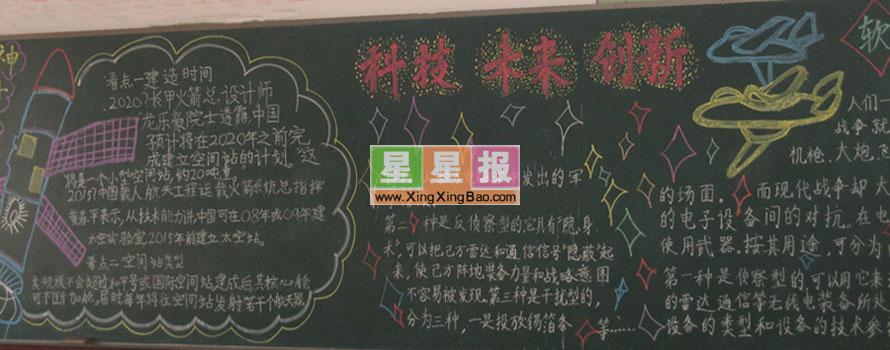 神
看点一建造时间
2020?长甲火箭总设计师
龙乐豪院士透露中国
预计将在2020年之前完
成建立空间站的计划。这
将是一个小型空间站,约20吨重
2015?中国载人航天工程运载火箭系统总指挥
表示,从技术能力讲中国可在08年或09年建
太空实验室2015年前建立太空站。
看点二空间站类型
规模不会超过和平号或国际空间站建成后其核心舱
可不断加舱,届时每年将往空间站发射若干个航天器
科技 未来 创新
发出的军
第二种是反侦察型的它具有"隐身
术",可以把己方雷达和通信信号"隐蔽"起
来,使己方阵地装备力量和战略意图
不容易被发现。第三种是干扰型的,
分为三种,一是投放锡箔条 等……
软
人们一
战争就
机枪、大炮、飞
的场面。而现代战争却大
的电子设备间的对抗。在电
使用武器。按其用途,可分为
第一种是侦察型的,可以用它来
的雷达通信等无线电装备所处
设备的类型和设备的技术参
星星报
www.XingXingBao.com